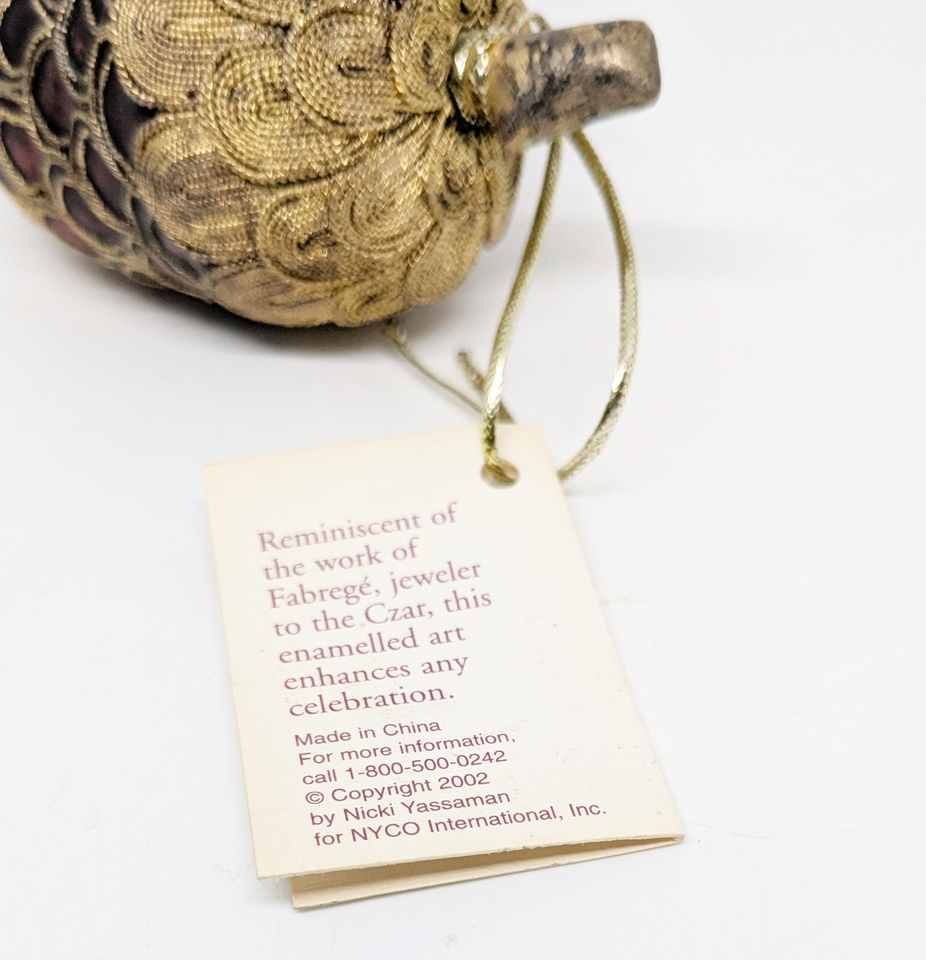 Reminiscent of
the work of
Fabregé, jeweler
to the Czar, this
enamelled art
enhances any
celebration.
Made in China
For more information,
call 1-800-500-0242
© Copyright 2002
by Nicki Yassaman
for NYCO International, Inc.